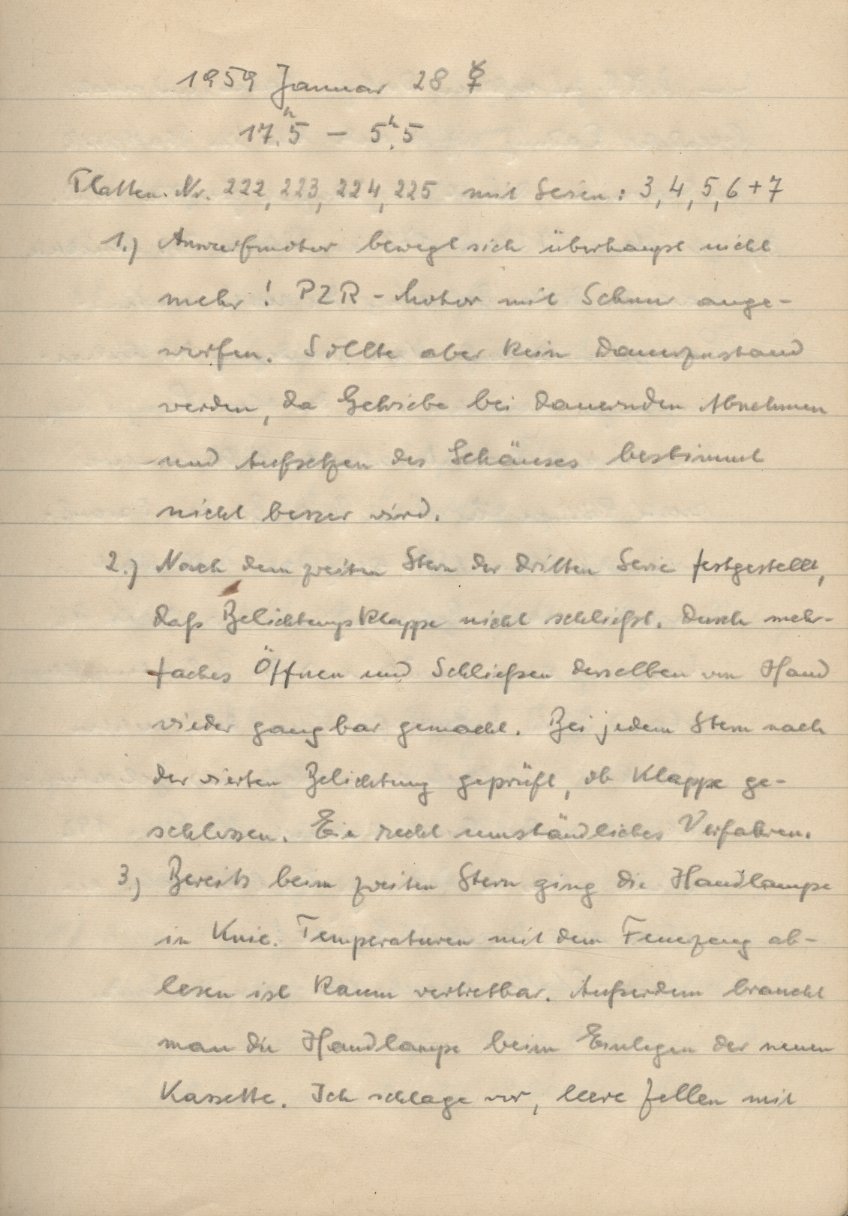 1959 Januar 28 ☿
17ʰ.5 – 5ʰ.5
Platten-Nr. 222, 223, 224, 225 mit Serien: 3, 4, 5, 6 + 7
1.) Anwurfmotor bewegt sich überhaupt nicht
mehr! PZR-Motor mit Schnur ange-
worfen. Sollte aber kein Dauerzustand
werden, da Getriebe bei dauernden Abnehmen
und Aufsetzen des Gehäuses bestimmt
nicht besser wird.
2.) Nach dem zweiten Stern der dritten Serie festgestellt,
daß Belichtungsklappe nicht schließt. Durch mehr-
faches Öffnen und Schließen derselben von Hand
wieder gangbar gemacht. Bei jedem Stern nach
der vierten Belichtung geprüft, ob Klappe ge-
schlossen. Ein recht umständliches Verfahren.
3.) Bereits beim zweiten Stern ging die Handlampe
in Knie. Temperaturen mit dem Feuerzeug ab-
lesen ist kaum vertretbar. Außerdem braucht
man die Handlampe beim Einlegen der neuen
Kassette. Ich schlage vor, leere Zellen mit